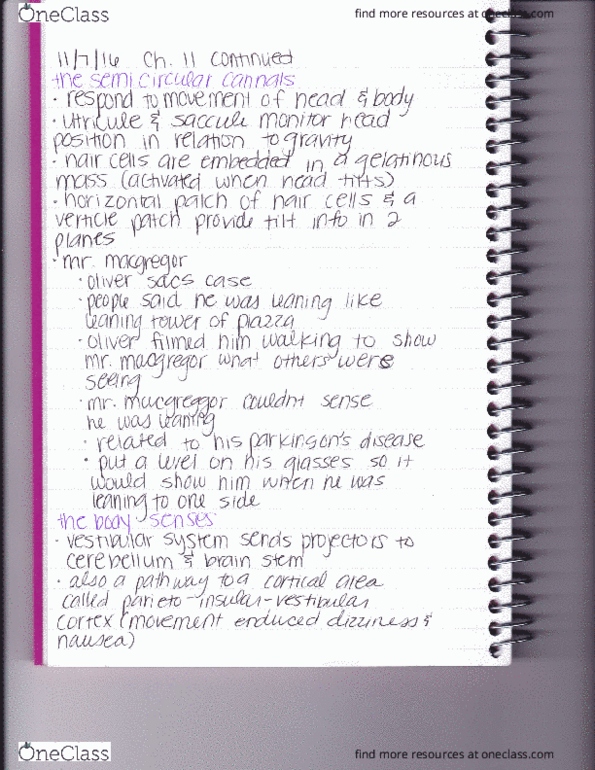 OneClass
find more resources at oneclass.com
11/7/16 Ch. 11 continued
the semi circular cannals
· respond to movement of head & body
· utricule & saccule monitor head
position in relation to gravity
· hair cells are embedded in a gelatinous
mass (activated when head tilts)
· horizontal patch of hair cells & a
verticle patch provide tilt info in 2
planes
· mr. macgregor
· oliver sacs case
· people said he was leaning like
leaning tower of piazza
· oliver filmed him walking to show
mr. macgregor what others were
seeing
· mr. macgreagor couldnt sense
he was leaning
· related to his parkinson's disease
· put a level on his glasses so it
would show him when he was
leaning to one side
the body senses
· vestibular system sends projectors to
cerebellum & brain stem
· also a pathway to a cortical area
called parieto-insular-vestibular
cortex (movement enduced dizziness &
nausea)
OneClass
find more resources at oneclass.com